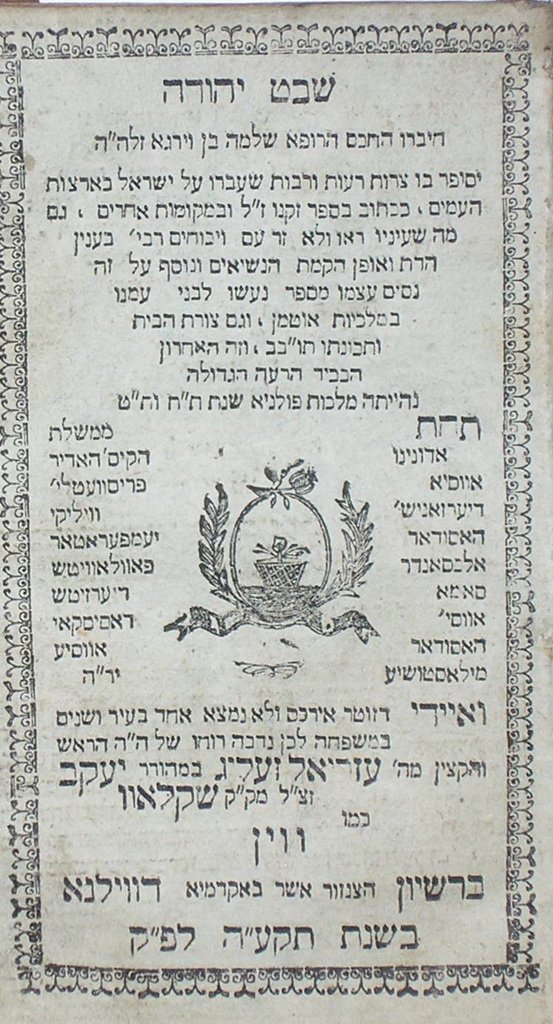 שבט יהודה
חיברו החכם הרופא שלמה בן וירגא זלה"ה
יסופר בו צרות רעות ורבות שעברו על ישראל בארצות
העמים, ככתוב בספר זקנו ז"ל ובמקומות אחרים, גם
מה שעיניו ראו ולא זר עם ויכוחים רבי' בענין
הדת ואופן הקמת הנשיאים ונוסף על זה
נסים עצמו מספר נעשו לבני עמנו
במלכיות אוטמן, וגם צורת הבית
ותבונתו תו"בב, וזה האחרון
הכביד הרעה הגדולה
נהייתה מלכות פולניא שנת ת"ח ות"ט
תחת ממשלת
אדונינו הקיס' האדיר
אווסיא פריסוועטלי'
דיערזאניש' ווליקי
האסודאר יעמפעראטאר
אלכסאנדר פאוולאוויטש
סאמא דיערזיטש
אווסי' ראסיסקאי
האסודאר אווסיע
מילאסטושיע יר"ה
ואיידי דזוטר אירכס ולא נמצא אחד בעיר ושנים
במשפחה לכן נדבה רוחו של ה"ה הראש
והקצין מה' עזריאל זעליג במהורר יעקב
זצ"ל מק"ק שקלאוו
כמו
ווין
ברשיון הצנזור אשר באקדמיא דווילנא
בשנת תקע"ה לפ"ק